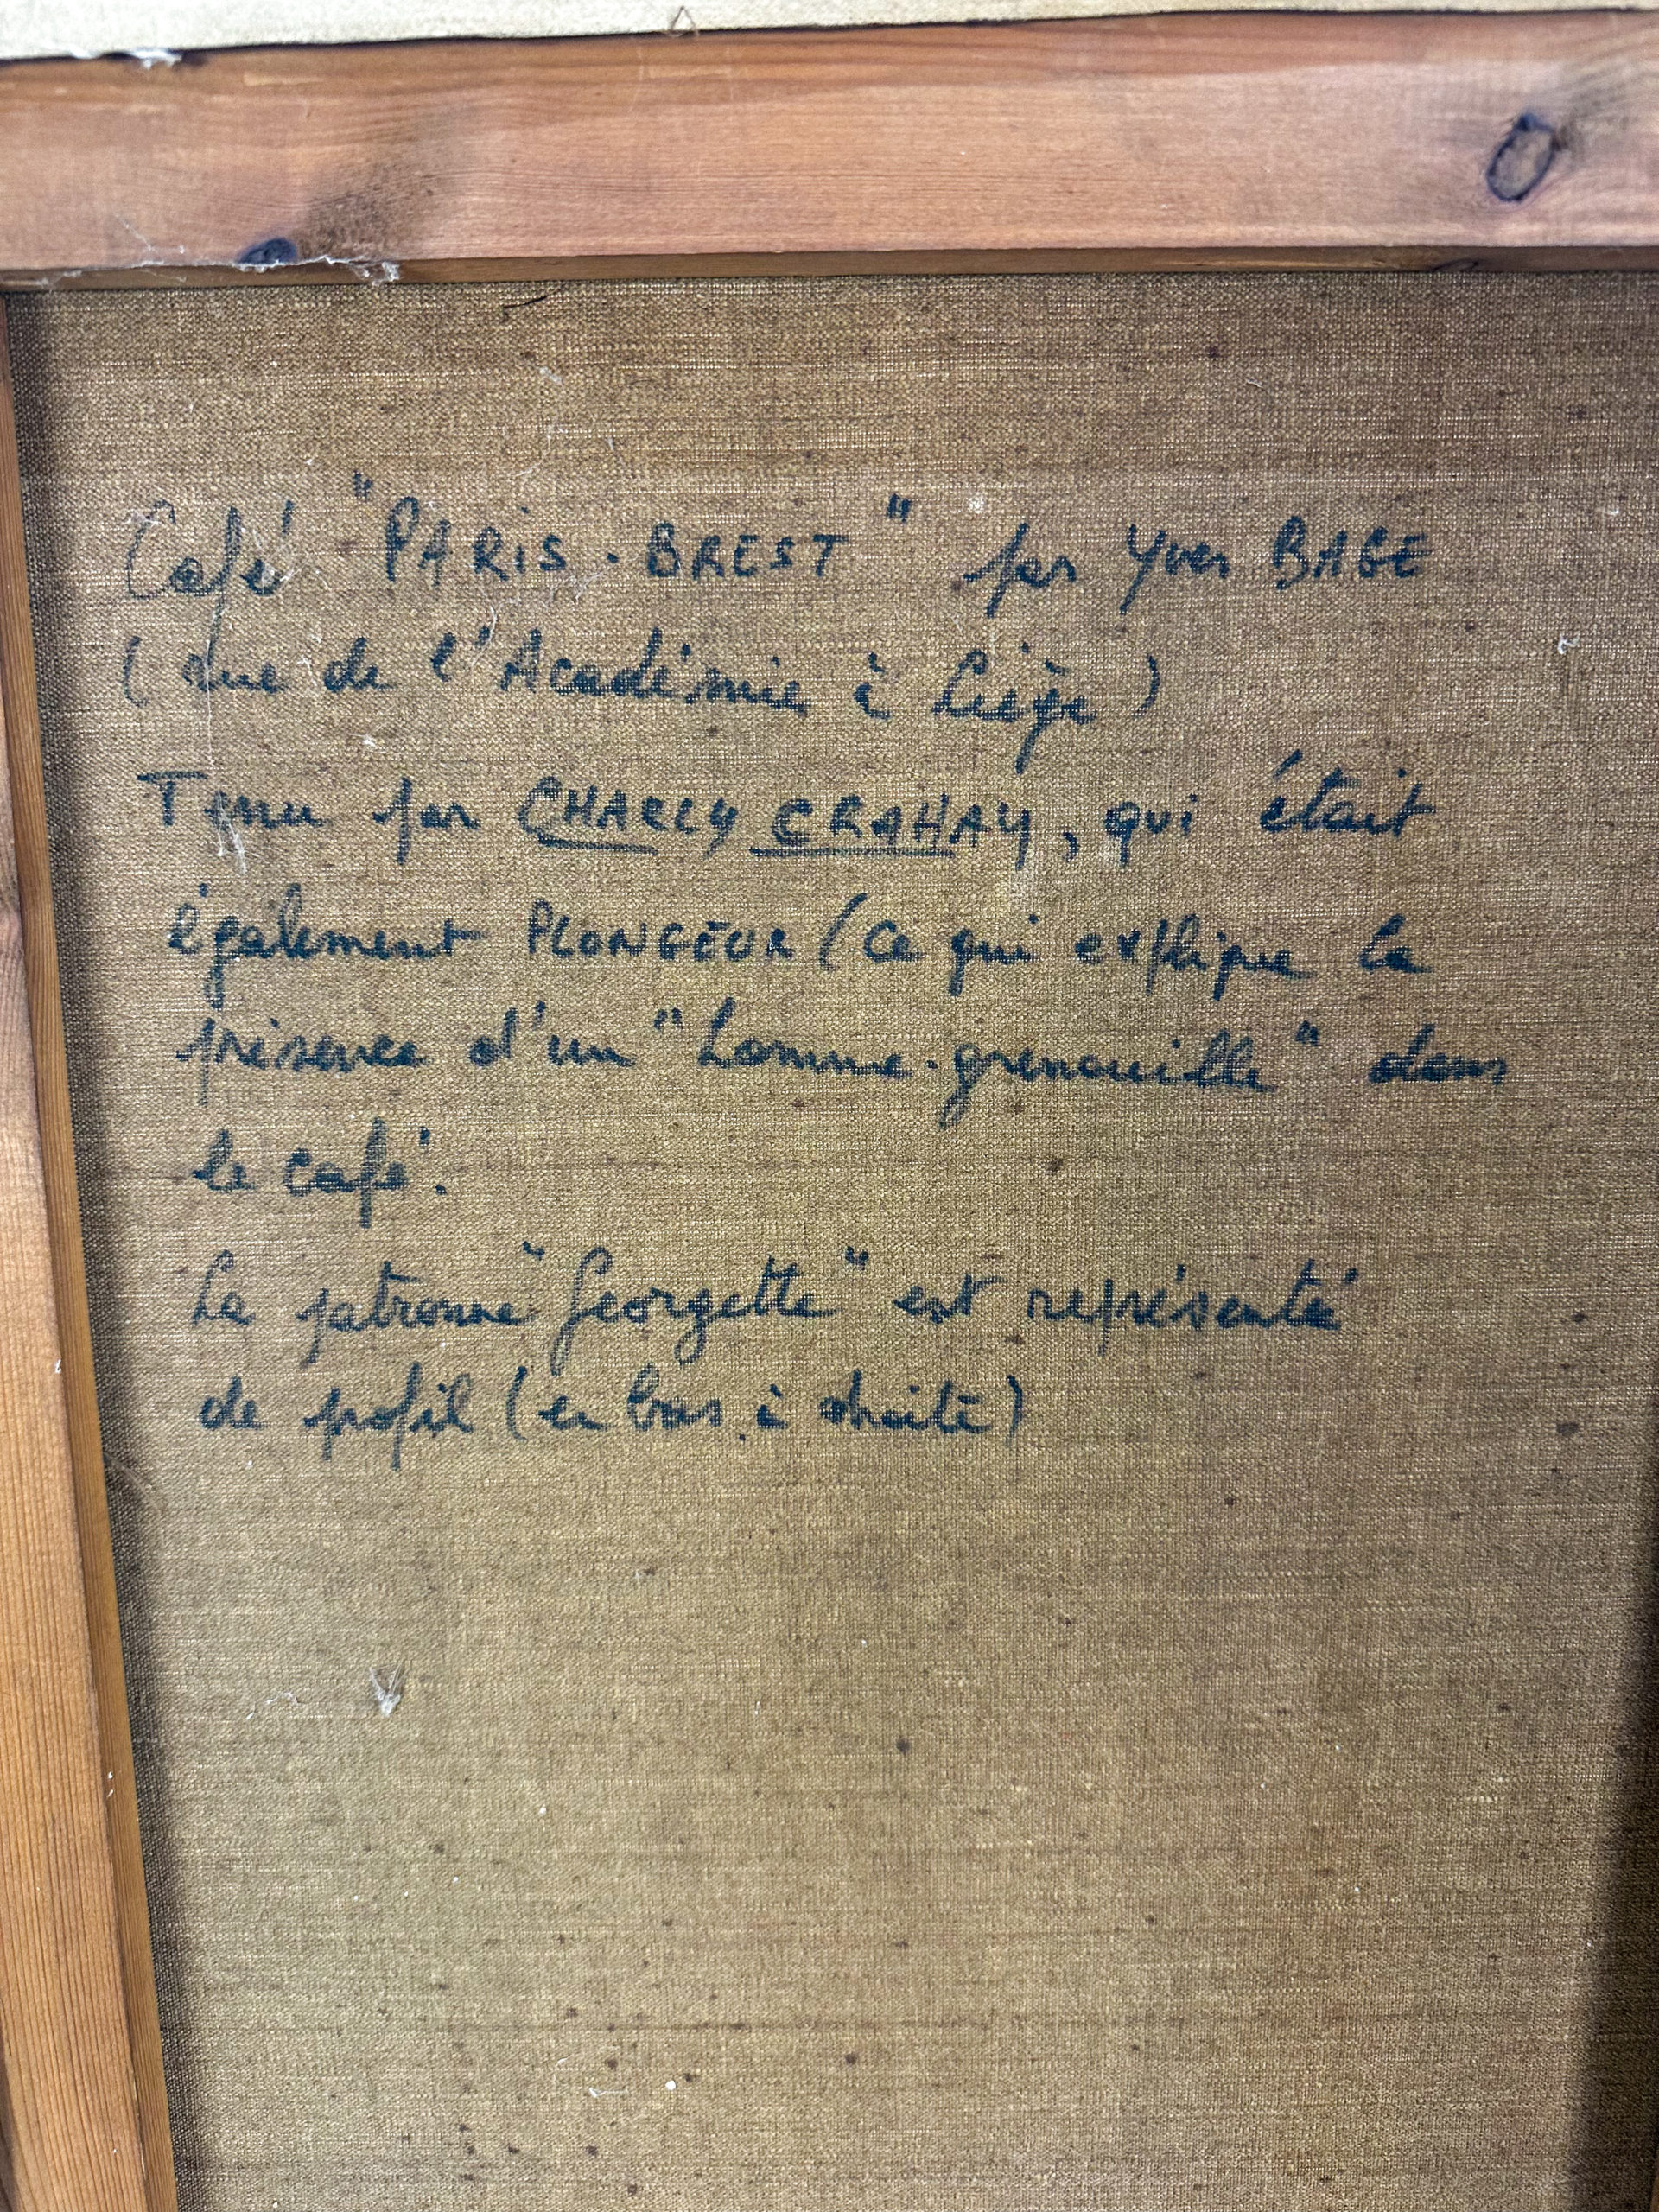 Café "PARIS-BREST" par Yves BAGE
(rue de l'Académie à Liège)
Tenu par CHARLY CRAHAY, qui était
également PLONGEUR (ce qui explique la
présence d'un "homme-grenouille" dans
le café.
La patronne "Georgette" est représenté
de profil (en bas à droite)